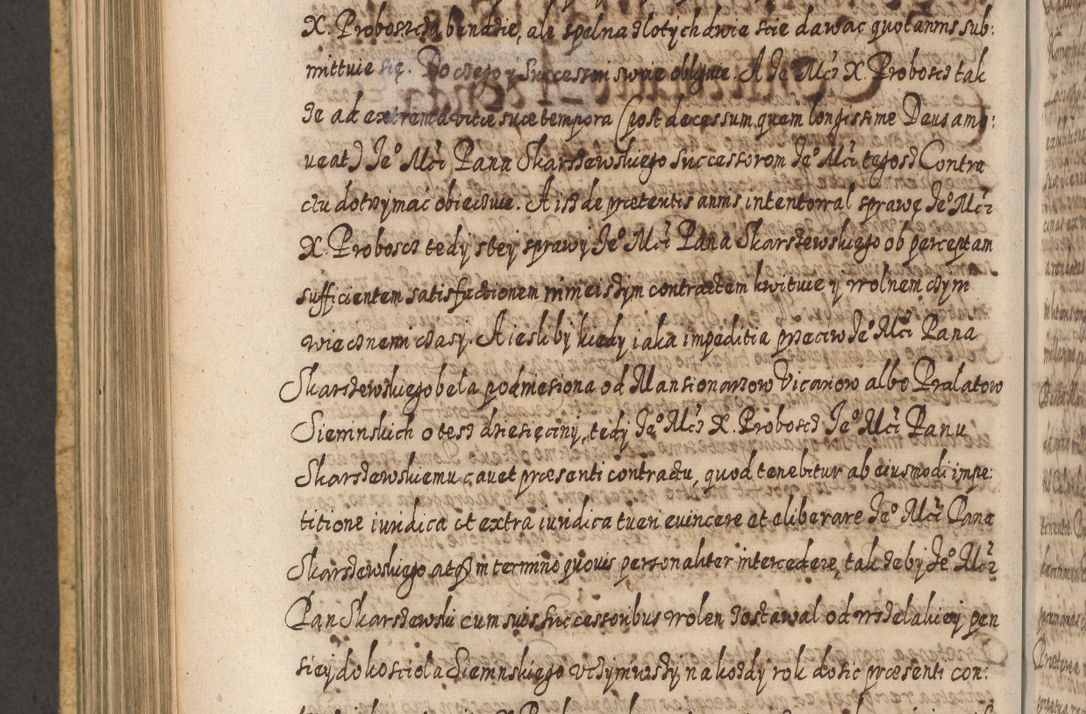 X. Proboszcz bendzie, ale spelna zlotych dwie scie dawac quotannis sub:
mittuie się. Do czego y Successorow swoie obliguie. A Je° Mći X. Probosc tak
ze ad extrema vitæ suæ tempora (post decessum quem longissime Deus amo:
veat) Je° Mći Pana Skarszewskiego successorom Je° Mći tegosz Contra
ctu dotrzymac obiecuie. A isz de prætentis annis intentowal sprawę Je° Mći
X. Probosc tedy s tey sprawy Je° Mći Pana Skarszewskiego ob perceptam
sufficientem satisfactionem ninieiszym contractem kwituie y wolnem czym
wiecznemi czasy. A iesliby kiedy iaka impeditia przeciw Je° Mći Pana
Skarszewskiego bela podniesiona od Mansionarzow Vicariow albo Pralatow
Sieminskich o tesz dziesięciny, tedy Je° Mći X. Probosc Je° Mći Panu
Skarszewskiemu cauet præsenti contractu, quod tenebitur ab eiusmodi impe:
titione iuridica et extra iuridica tueri euincere et eliberare Je° Mći Pana
Skarszewskiego atqz in termino quouis personaliter intercedere, tak zeby Je° Mći
Pan Skarszewski cum suis successoribus wolen zostawal od wszelakiey pen
siey do kosciola Siemnskiego ktorym kozdy na kozdy rok dosic præsenti con: